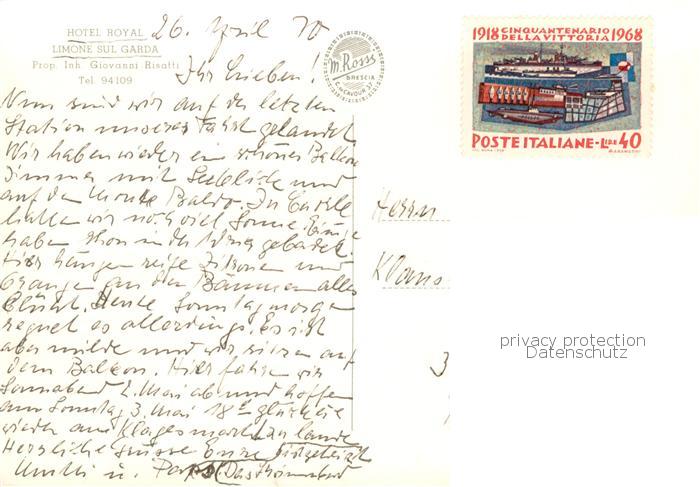 HOTEL ROYAL
LIMONE SUL GARDA
Prop. Inh. Giovanni Risatti
Tel. 94109
M. Ross
BRESCIA
1918 CINQUANTENARIO 1968
DELLA VITTORIA
POSTE ITALIANE - LIRE 40
26. April 70
Ihr Lieben!
Nun sind wir auf der letzten
Station unserer Fahrt gelandet
Wir haben wieder ein schönes Balkon
Zimmer mit Seeblick und
auf den Monte Baldo. In
hatten wir noch viel Sonne Einige
haben schon in der gebadet.
Hier hängen reife Zitronen und
Orangen an den Bäumen alles
blüht. Heute Sonntagmorgen
regnet es allerdings. Es ist
aber milde und wir sitzen auf
dem Balkon. Hier fahren wir
Sonnabend 2. Mai ab und hoffen
am Sonntag 3. Mai 18 glücklich
wieder am Klagesmarkt zu landen
Herzliche Grüsse Eure
Mutti u.
Herrn
Klaus
3
privacy protection
Datenschutz